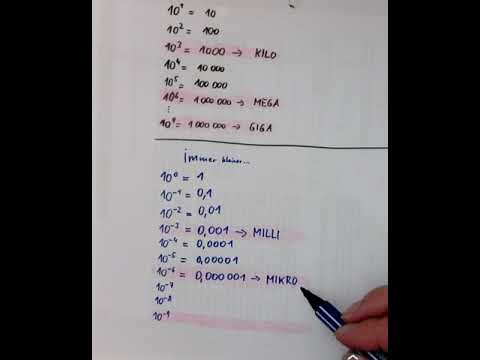 10¹ = 10
10² = 100
10³ = 1000 → KILO
10⁴ = 10 000
10⁵ = 100 000
10⁶ = 1 000 000 → MEGA
⋮
10⁹ = 1 000 000 → GIGA
immer kleiner...
10⁰ = 1
10⁻¹ = 0,1
10⁻² = 0,01
10⁻³ = 0,001 → MILLI
10⁻⁴ = 0,0001
10⁻⁵ = 0,00001
10⁻⁶ = 0,000 001 → MIKRO
10⁻⁷
10⁻⁸
10⁻⁹